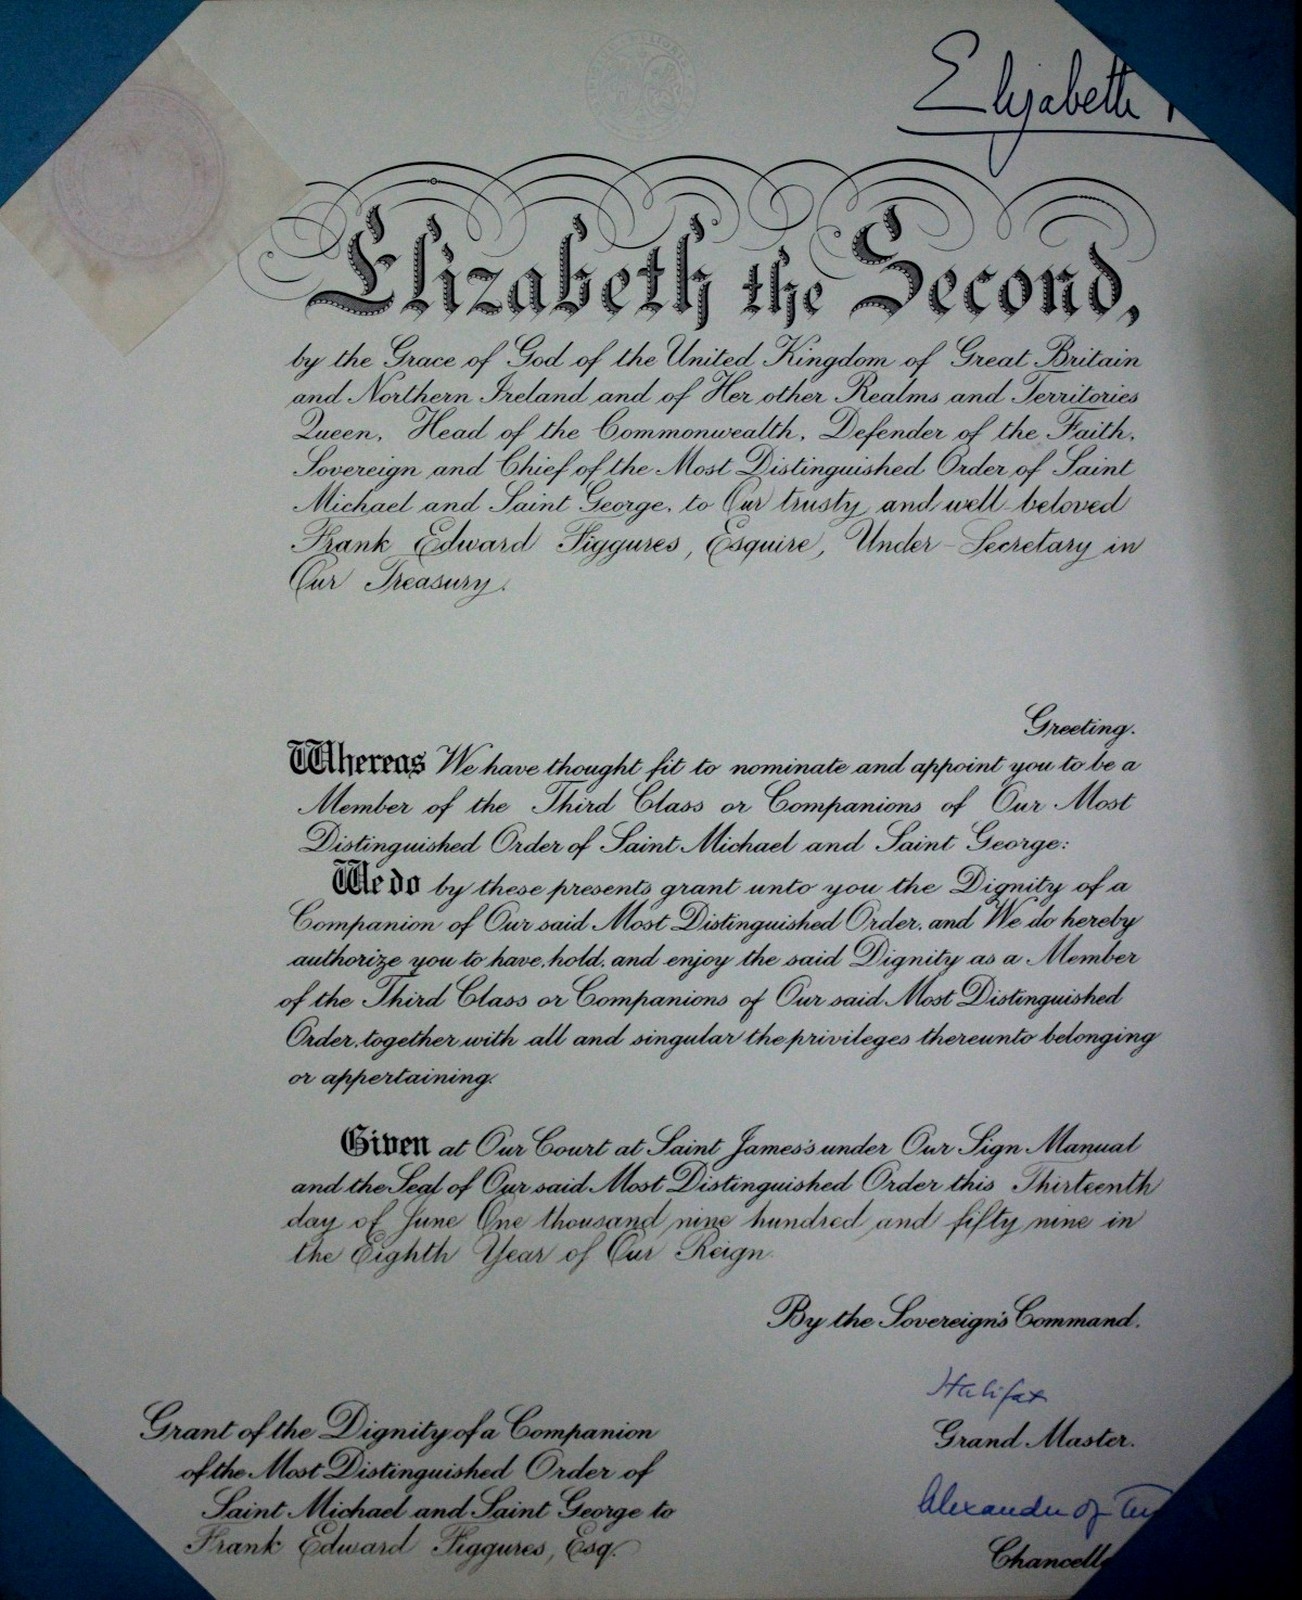 Elizabeth
Elizabeth the Second,
by the Grace of God of the United Kingdom of Great Britain
and Northern Ireland and of Her other Realms and Territories
Queen, Head of the Commonwealth, Defender of the Faith,
Sovereign and Chief of the Most Distinguished Order of Saint
Michael and Saint George, to Our trusty and well-beloved
Frank Edward Figgures, Esquire, Under-Secretary in
Our Treasury.
Greeting.
Whereas We have thought fit to nominate and appoint you to be a
Member of the Third Class or Companions of Our Most
Distinguished Order of Saint Michael and Saint George:
We do by these presents grant unto you the Dignity of a
Companion of Our said Most Distinguished Order, and We do hereby
authorize you to have, hold, and enjoy the said Dignity as a Member
of the Third Class or Companions of Our said Most Distinguished
Order, together with all and singular the privileges thereunto belonging
or appertaining.
Given at Our Court at Saint James's under Our Sign Manual
and the Seal of Our said Most Distinguished Order this Thirteenth
day of June One thousand nine hundred and fifty nine in
the Eighth Year of Our Reign.
By the Sovereign's Command.
Halifax
Grand Master.
Alexander of
Chancell
Grant of the Dignity of a Companion
of the Most Distinguished Order of
Saint Michael and Saint George to
Frank Edward Figgures, Esq.